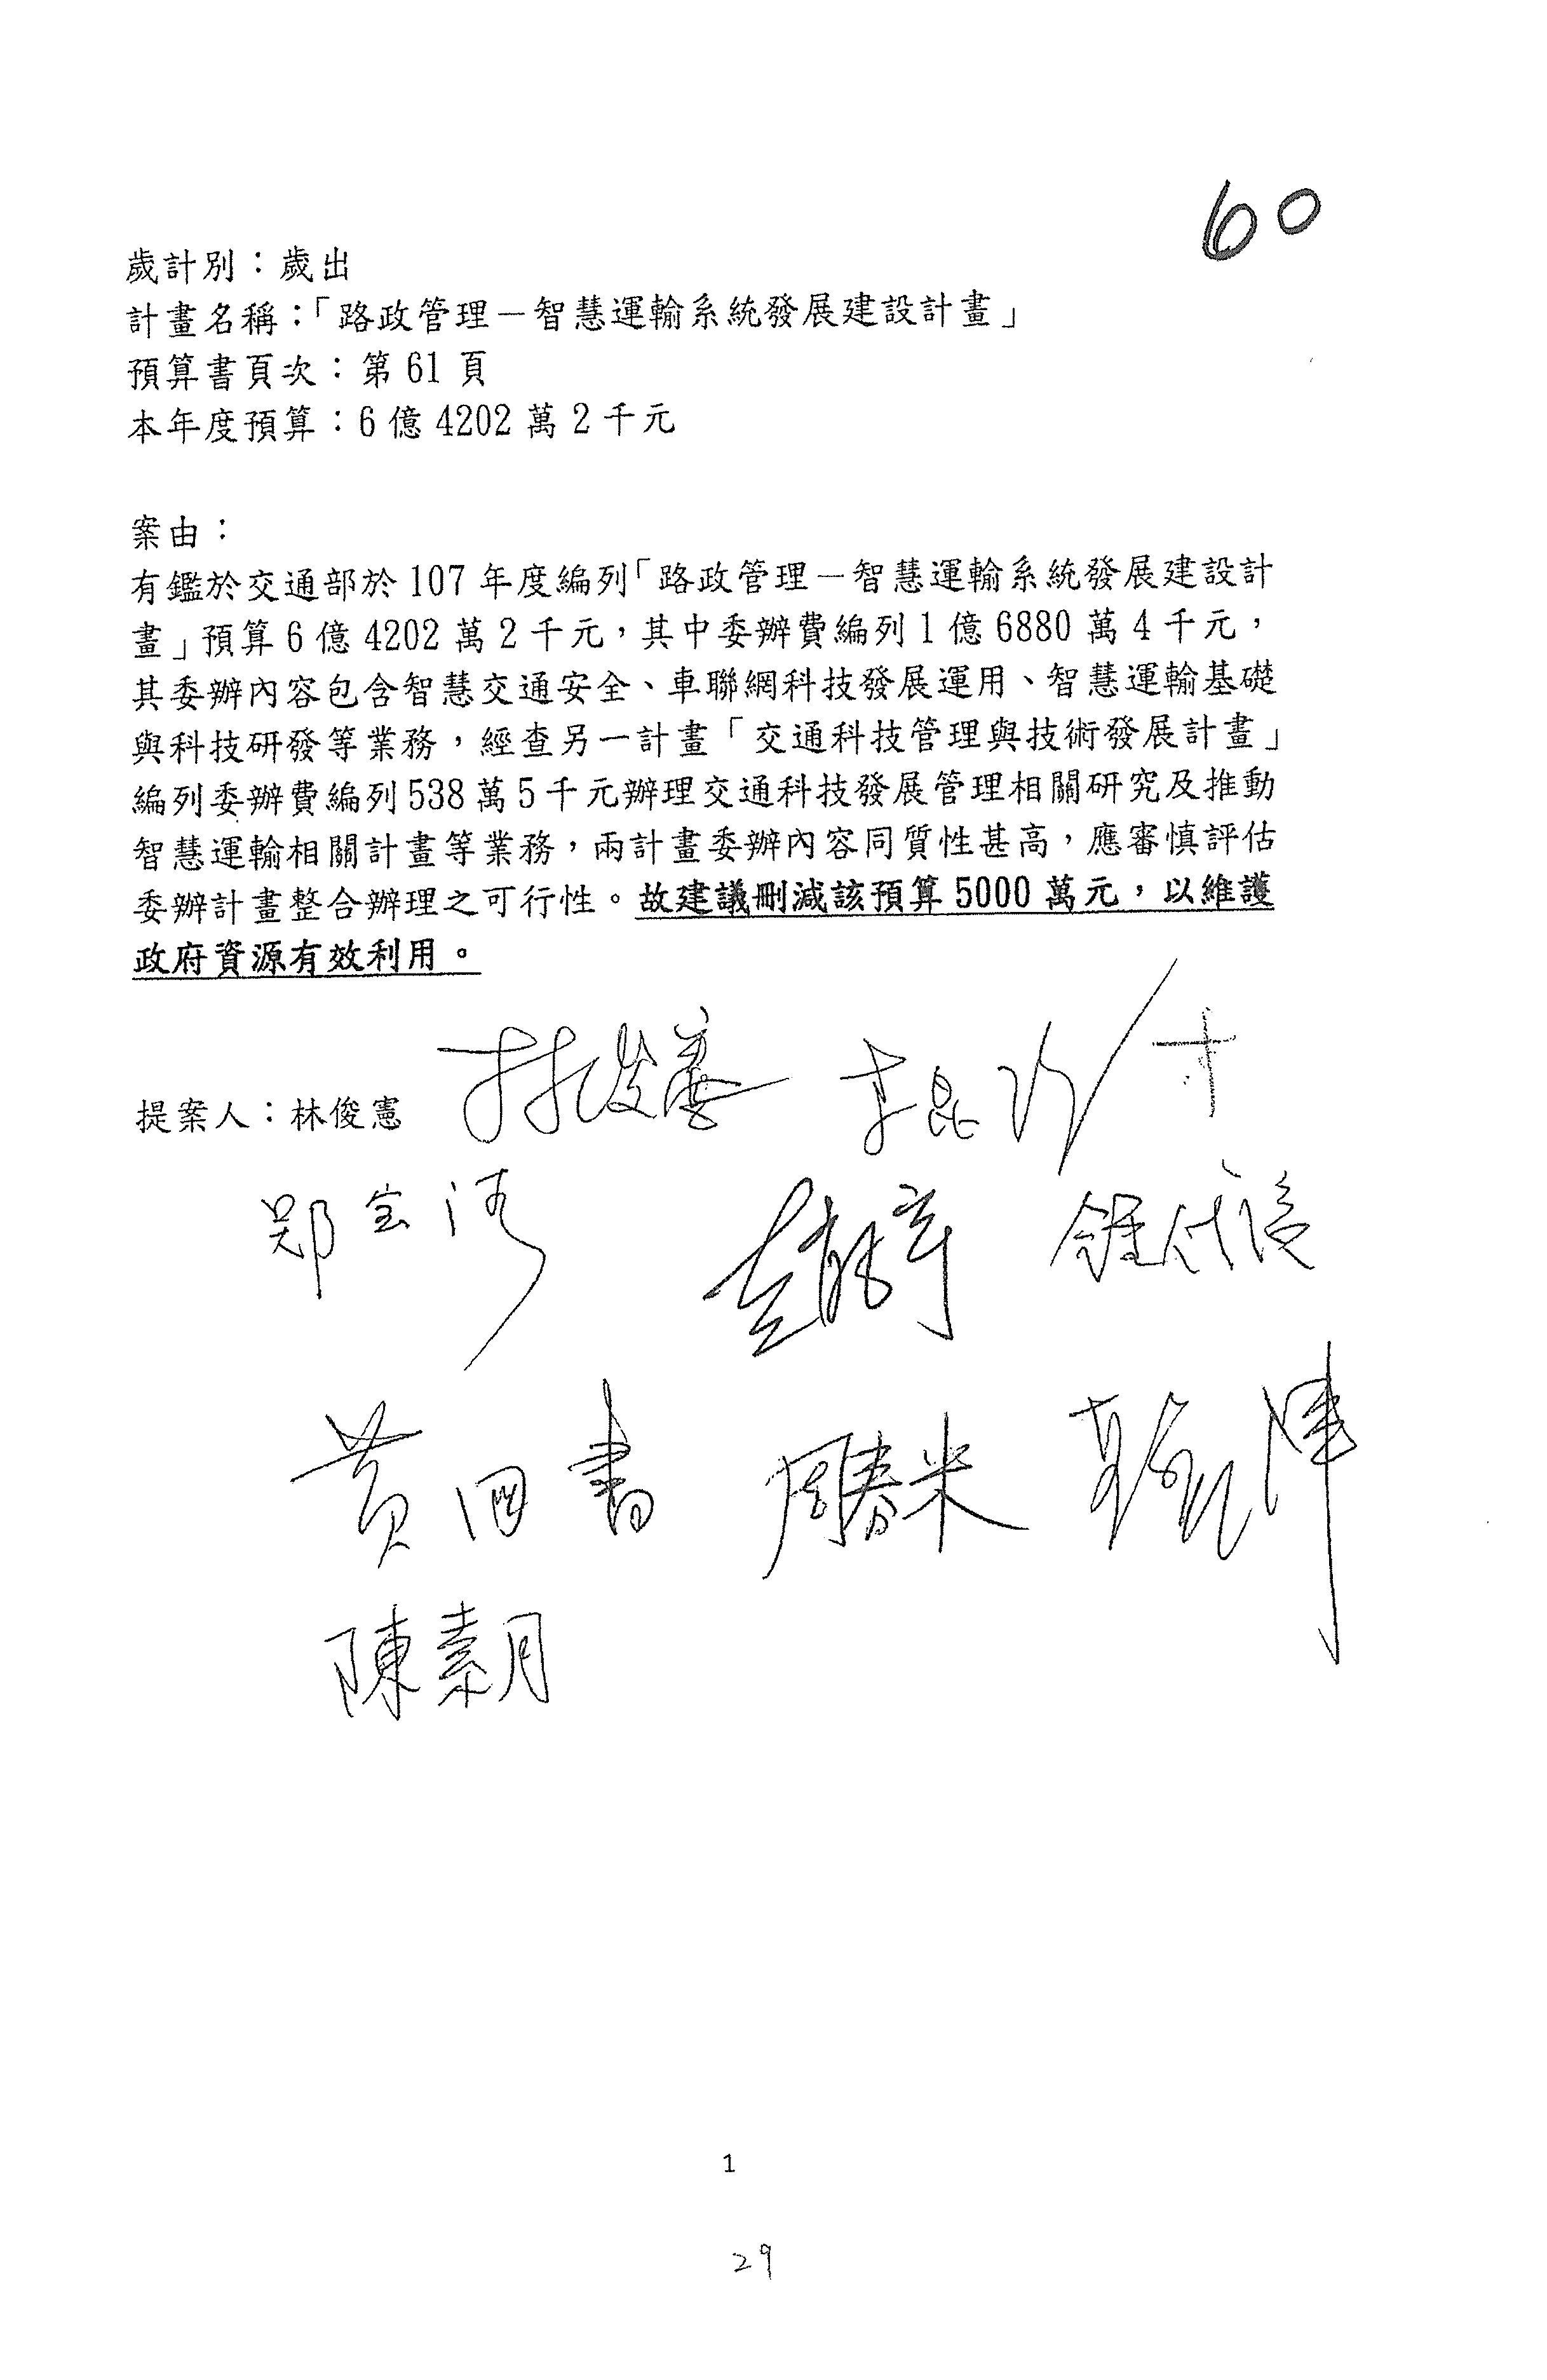 60
歲計別：歲出
計畫名稱：「路政管理－智慧運輸系統發展建設計畫」
預算書頁次：第 61 頁
本年度預算：6 億 4202 萬 2 千元
案由：
有鑑於交通部於 107 年度編列「路政管理－智慧運輸系統發展建設計
畫」預算 6 億 4202 萬 2 千元，其中委辦費編列 1 億 6880 萬 4 千元，
其委辦內容包含智慧交通安全、車聯網科技發展運用、智慧運輸基礎
與科技研發等業務，經查另一計畫「交通科技管理與技術發展計畫」
編列委辦費編列 538 萬 5 千元辦理交通科技發展管理相關研究及推動
智慧運輸相關計畫等業務，兩計畫委辦內容同質性甚高，應審慎評估
委辦計畫整合辦理之可行性。故建議刪減該預算 5000 萬元，以維護
政府資源有效利用。
提案人：林俊憲 林俊憲 李昆澤
鄭宝清
黃國書 周春米
陳素月
1
29